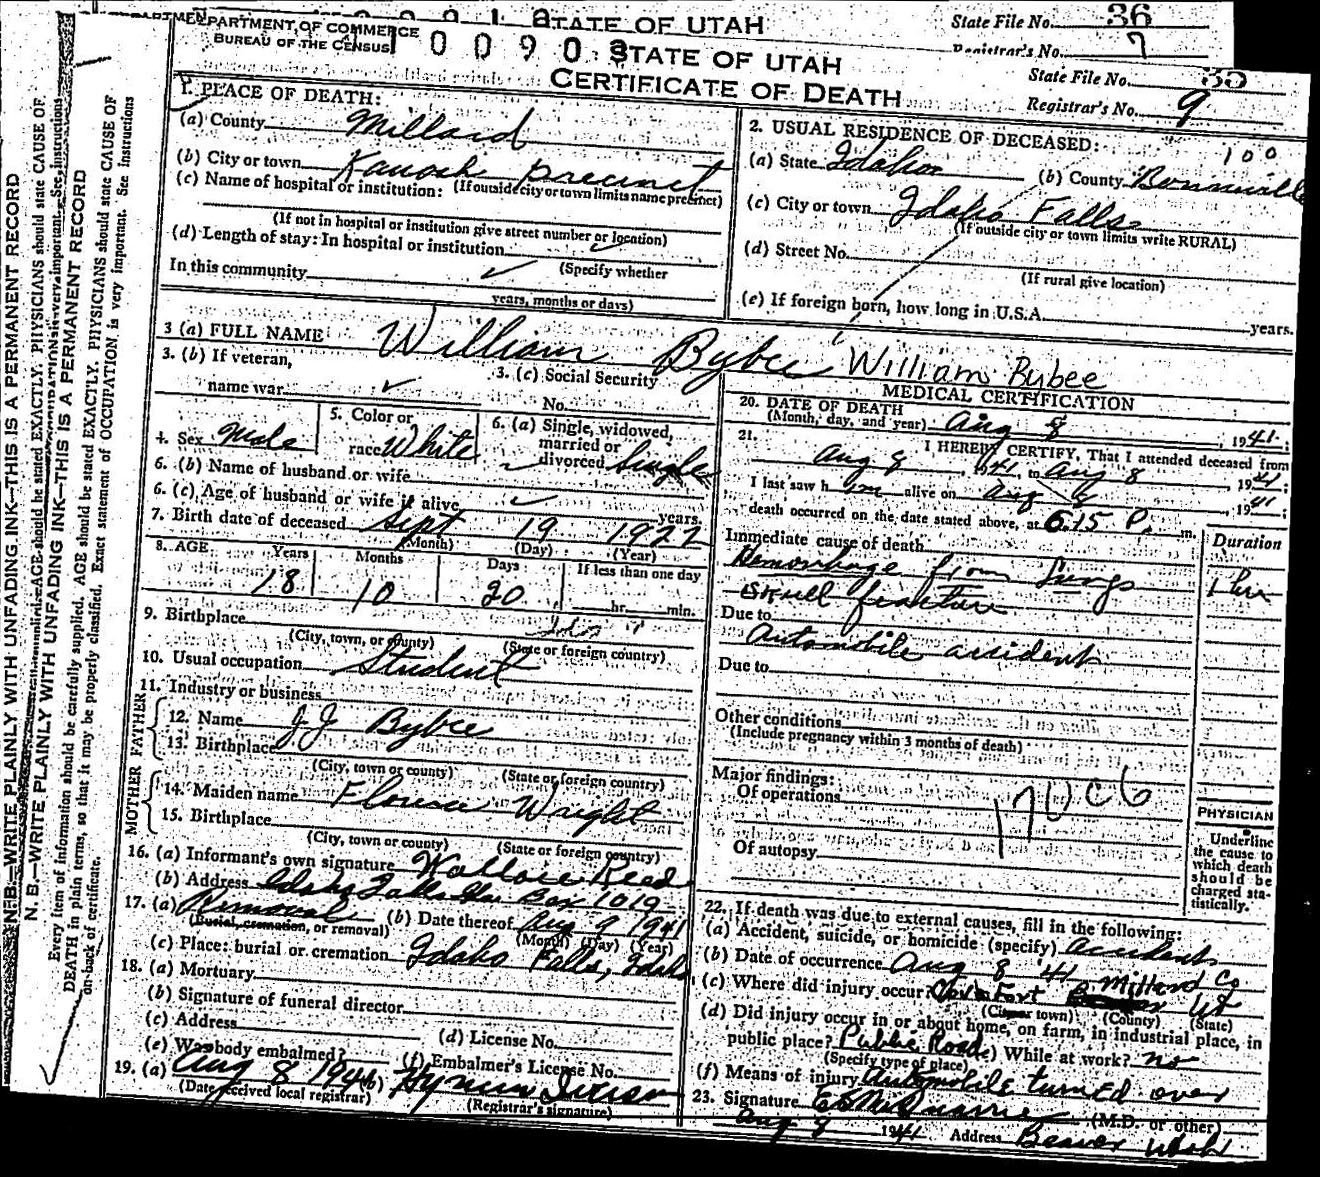 STATE OF UTAH
State File No. 36
Registrar's No. 7
DEPARTMENT OF COMMERCE
BUREAU OF THE CENSUS
0090
STATE OF UTAH
CERTIFICATE OF DEATH
State File No. 35
Registrar's No. 9
N. B.—WRITE PLAINLY WITH UNFADING INK—THIS IS A PERMANENT RECORD
N. B.—WRITE PLAINLY WITH UNFADING INK—THIS IS A PERMANENT RECORD
Every item of information should be carefully supplied. AGE should be stated EXACTLY. PHYSICIANS should state CAUSE OF
DEATH in plain terms, so that it may be properly classified. Exact statement of OCCUPATION is very important. See instructions
on back of certificate.
1. PLACE OF DEATH:
(a) County Millard
(b) City or town Kanosh Precinct
(If outside city or town limits name precinct)
(c) Name of hospital or institution:
(If not in hospital or institution give street number or location)
(d) Length of stay: In hospital or institution ✓
(Specify whether
In this community ✓
years, months or days)
2. USUAL RESIDENCE OF DECEASED:
100
(a) State Idaho (b) County Bonneville
(c) City or town Idaho Falls
(If outside city or town limits write RURAL)
(d) Street No.
(If rural give location)
(e) If foreign born, how long in U.S.A. years.
3 (a) FULL NAME William Bybee William Bybee
3. (b) If veteran,
name war ✓
3. (c) Social Security
No.
4. Sex Male
5. Color or
race White
6. (a) Single, widowed,
married or
divorced Single
6. (b) Name of husband or wife ✓
6. (c) Age of husband or wife if alive ✓ years.
7. Birth date of deceased Sept 19 1922
(Month) (Day) (Year)
8. AGE Years Months Days If less than one day
18 10 20 hr. min.
9. Birthplace
(City, town, or county) (State or foreign country)
10. Usual occupation Student
11. Industry or business
FATHER
12. Name J J Bybee
13. Birthplace
(City, town or county) (State or foreign country)
MOTHER
14. Maiden name Florence Wright
15. Birthplace
(City, town or county) (State or foreign country)
16. (a) Informant's own signature Wallace Reed
(b) Address Idaho Falls Ida Box 1019
17. (a) Removal (b) Date thereof Aug 9 1941
(Burial, cremation, or removal) (Month) (Day) (Year)
(c) Place: burial or cremation Idaho Falls, Idaho
18. (a) Mortuary
(b) Signature of funeral director
(c) Address (d) License No.
(e) Was body embalmed? (f) Embalmer's License No.
19. (a) Aug 8 1941 (b) Hyman
(Date received local registrar) (Registrar's signature)
MEDICAL CERTIFICATION
20. DATE OF DEATH
(Month, day, and year) Aug 8, 1941;
21. I HEREBY CERTIFY, That I attended deceased from
Aug 8, 1941 to Aug 8, 1941;
I last saw him alive on Aug 8, 1941
death occurred on the date stated above, at 6:15 P. m.
Duration
Immediate cause of death
Hemorrhage from lungs 1 hr
Skull fracture
Due to
Automobile accident
Due to
Other conditions
(Include pregnancy within 3 months of death)
Major findings:
Of operations
170 C6
Of autopsy
PHYSICIAN
Underline
the cause to
which death
should be
charged sta-
tistically.
22. If death was due to external causes, fill in the following:
(a) Accident, suicide, or homicide (specify) Accident
(b) Date of occurrence Aug 8 '41
(c) Where did injury occur? Cove Fort Millard Co Ut
(City or town) (County) (State)
(d) Did injury occur in or about home, on farm, in industrial place, in
public place? Public Road (e) While at work? no
(Specify type of place)
(f) Means of injury Automobile turned over
23. Signature (M.D. or other)
Aug 8 1941 Address Beaver Utah